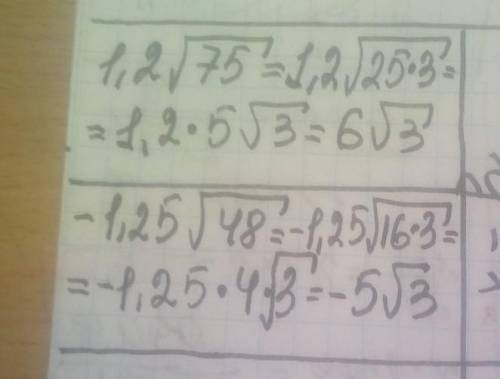 1,2√75 = 1,2√25·3 =
= 1,2·5√3 = 6√3
-1,25√48 = -1,25√16·3 =
= -1,25·4·√3 = -5√3